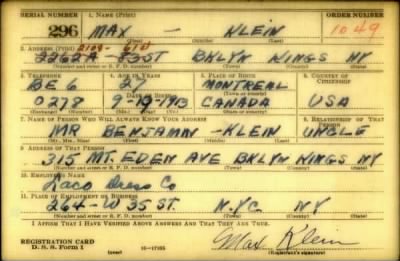 SERIAL NUMBER 1. NAME (Print) ORDER NUMBER
296 MAX — KLEIN 1049
2. ADDRESS (Print) 2109- 61st
2262A 73ST BKLYN KINGS NY
(Number and street or R. F. D. number) (Town) (County) (State)
3. TELEPHONE 4. AGE IN YEARS 5. PLACE OF BIRTH 6. COUNTRY OF CITIZENSHIP
BE 6 27 MONTREAL
DATE OF BIRTH (Town or county)
0278 9-19-1913 CANADA USA
7. NAME OF PERSON WHO WILL ALWAYS KNOW YOUR ADDRESS 8. RELATIONSHIP OF THAT PERSON
MR BENJAMIN -KLEIN UNCLE
(Mr., Mrs., Miss) (First) (Middle) (Last)
9. ADDRESS OF THAT PERSON
315 MT. EDEN AVE BKLYN KINGS NY
(Number and street or R. F. D. number) (Town) (County) (State)
10. EMPLOYER'S NAME
Laco Dress Co
11. PLACE OF EMPLOYMENT OR BUSINESS
264-W 35 ST. N.Y.C. NY
(Number and street or R. F. D. number) (Town) (County) (State)
I AFFIRM THAT I HAVE VERIFIED ABOVE ANSWERS AND THAT THEY ARE TRUE.
REGISTRATION CARD
D. S. S. Form 1 (over) 16—17105 Max Klein
(Registrant's signature)